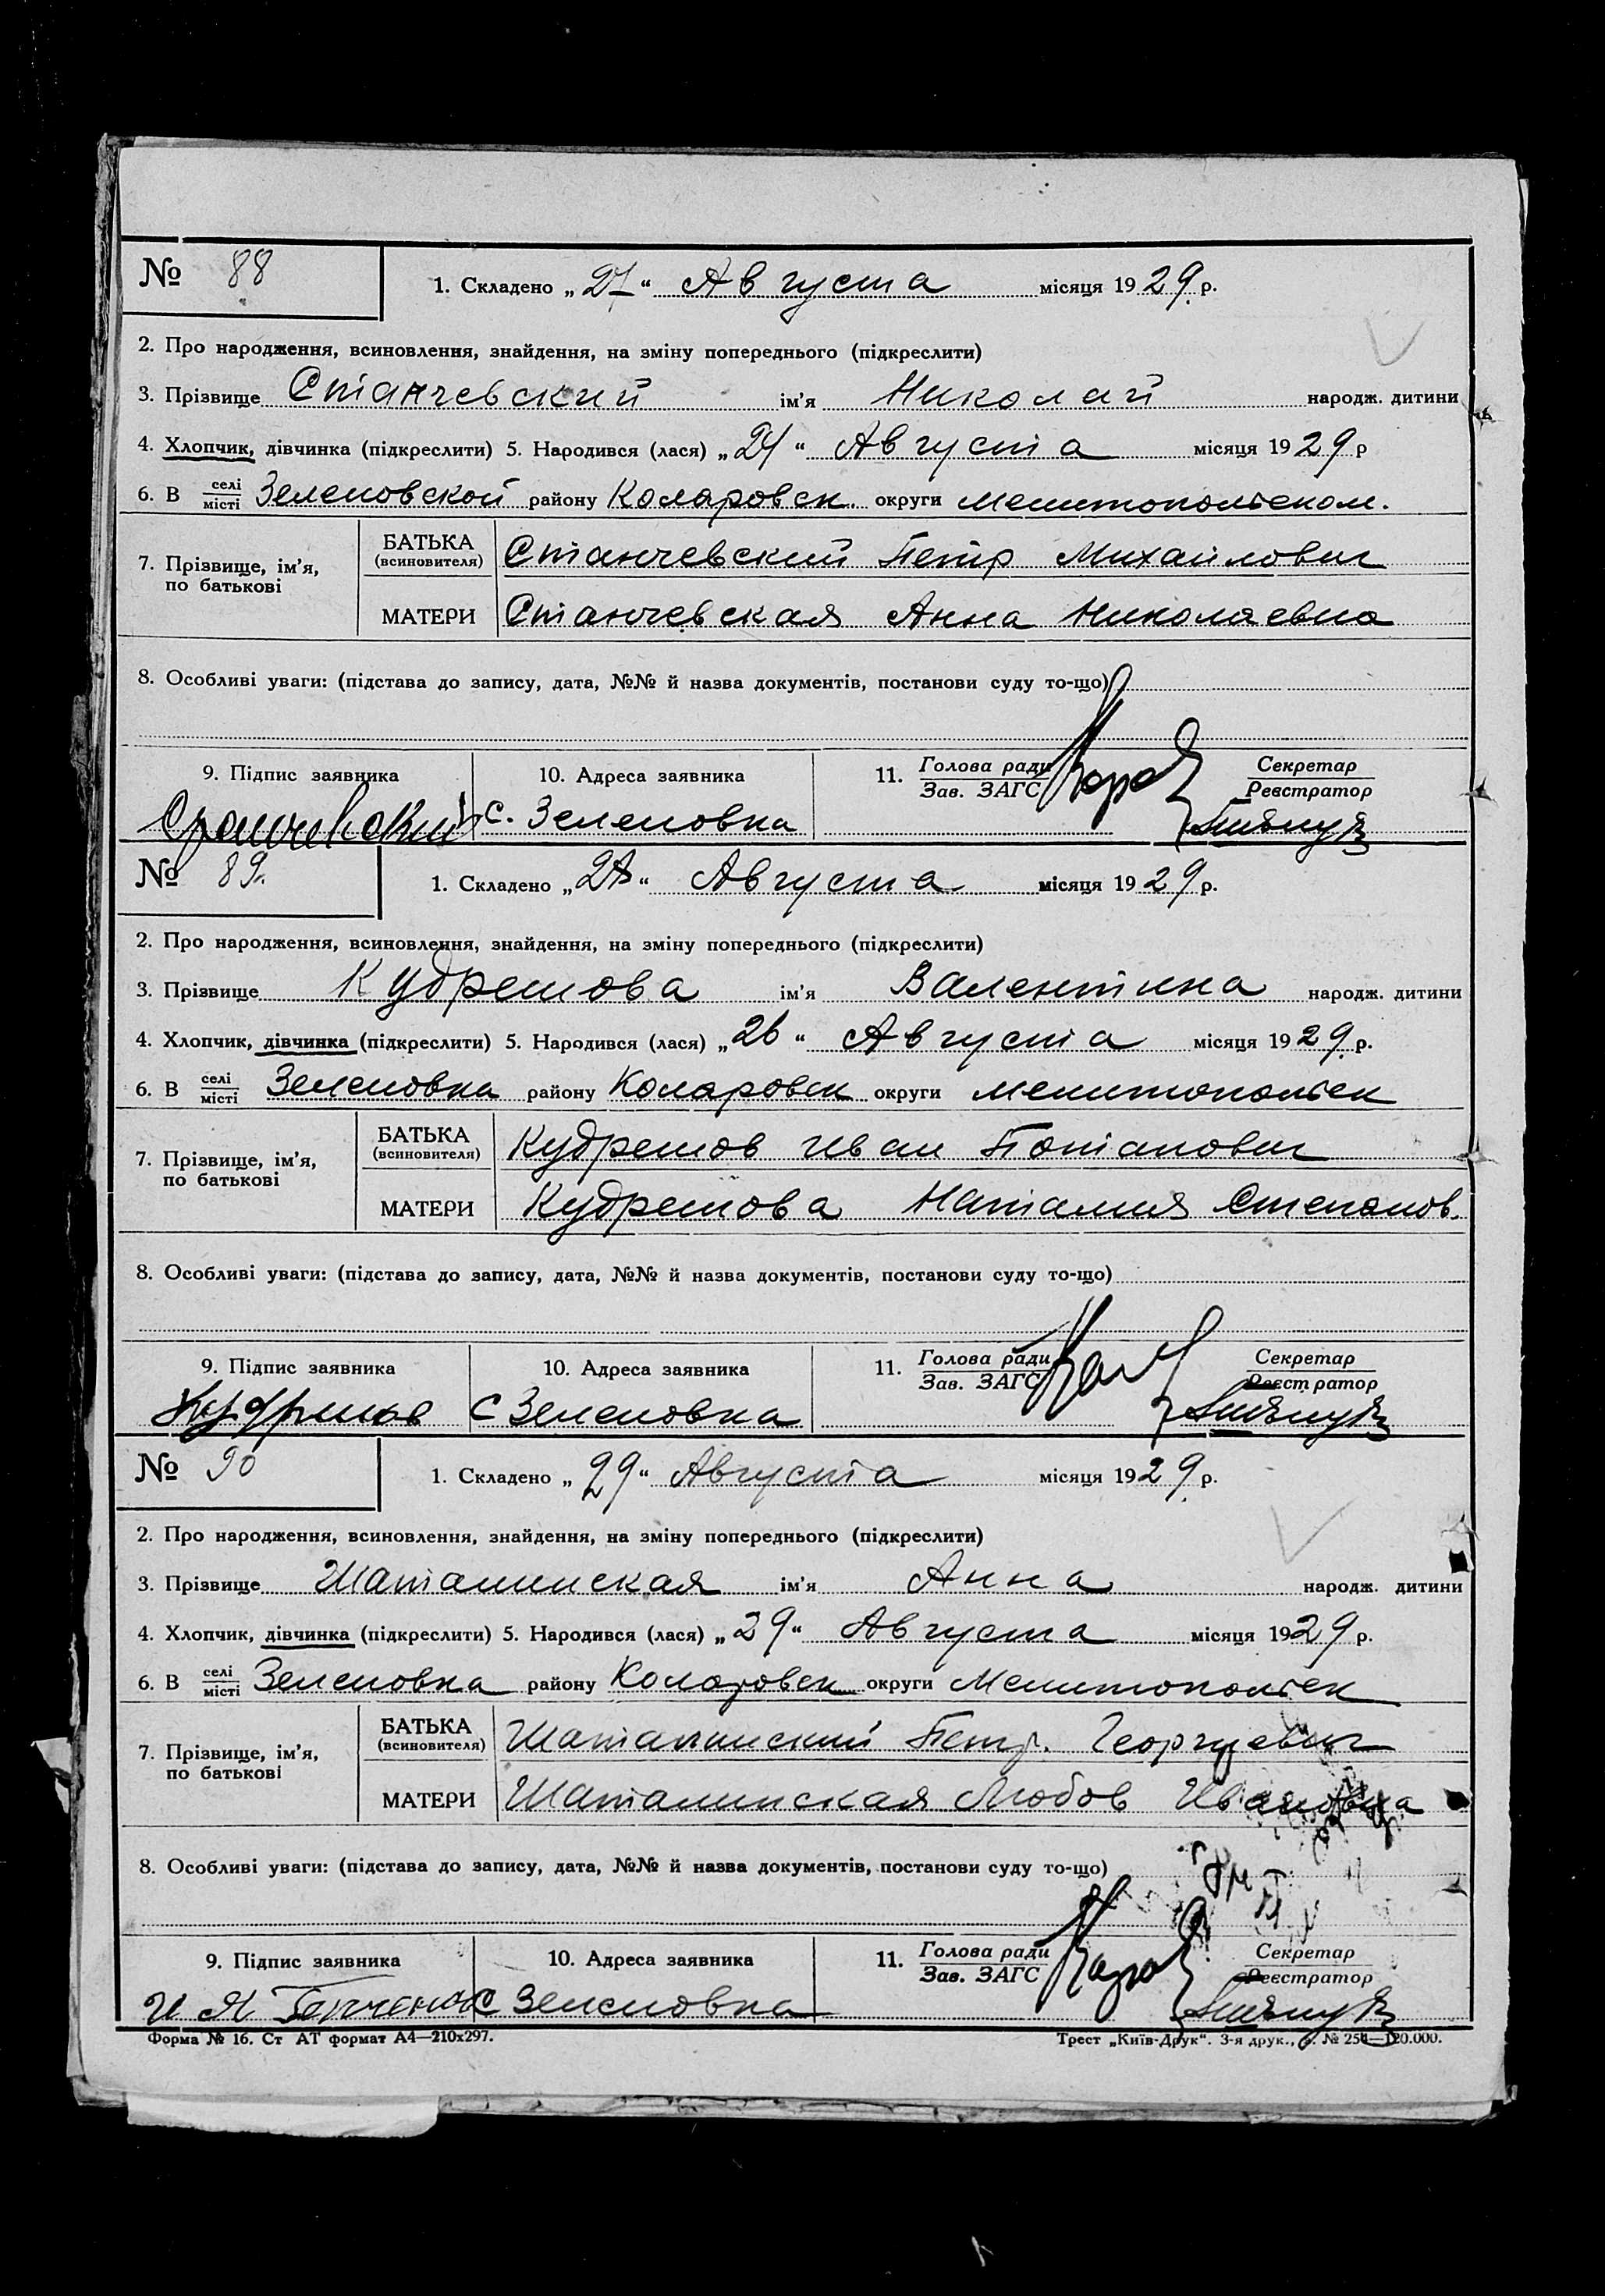 № 88
1. Складено „27“ Августа місяця 1929 р.
2. Про народження, всиновлення, знайдення, на зміну попереднього (підкреслити)
3. Прізвище Станчевский ім'я Николай народж. дитини
4. Хлопчик, дівчинка (підкреслити) 5. Народився (лася) „24“ Августа місяця 1929 р
6. В селі місті Зеленовской району Коларовск. округи Мелитопольском.
7. Прізвище, ім'я, по батькові
БАТЬКА (всиновителя) Станчевский Петр Михайлович
МАТЕРИ Станчевская Анна Николаевна
8. Особливі уваги: (підстава до запису, дата, №№ й назва документів, постанови суду то-що)
9. Підпис заявника 10. Адреса заявника 11. Голова ради Зав. ЗАГС Секретар Реєстратор
с. Зеленовка
№ 89.
1. Складено „28“ Августа місяця 1929 р.
2. Про народження, всиновлення, знайдення, на зміну попереднього (підкреслити)
3. Прізвище Кудрешова ім'я Валентина народж. дитини
4. Хлопчик, дівчинка (підкреслити) 5. Народився (лася) „26“ Августа місяця 1929 р.
6. В селі місті Зеленовка району Коларовск округи Мелитопольск
7. Прізвище, ім'я, по батькові
БАТЬКА (всиновителя) Кудрешов Иван Потапович
МАТЕРИ Кудрешова Наталия Степанов.
8. Особливі уваги: (підстава до запису, дата, №№ й назва документів, постанови суду то-що)
9. Підпис заявника 10. Адреса заявника 11. Голова ради Зав. ЗАГС Секретар Реєстратор
с Зеленовка
№ 90
1. Складено „29“ Августа місяця 1929 р.
2. Про народження, всиновлення, знайдення, на зміну попереднього (підкреслити)
3. Прізвище Шаталинская ім'я Анна народж. дитини
4. Хлопчик, дівчинка (підкреслити) 5. Народився (лася) „29“ Августа місяця 1929 р.
6. В селі місті Зеленовка району Коларовск округи Мелитопольск
7. Прізвище, ім'я, по батькові
БАТЬКА (всиновителя) Шаталинский Петр. Георгиевич
МАТЕРИ Шаталинская Любов Ивановна
8. Особливі уваги: (підстава до запису, дата, №№ й назва документів, постанови суду то-що)
9. Підпис заявника 10. Адреса заявника 11. Голова ради Зав. ЗАГС Секретар Реєстратор
с Зеленовка
Форма № 16. Ст АТ формат А4—210х297. Трест „Київ-Друк“. 3-я друк., з. № 254—120.000.